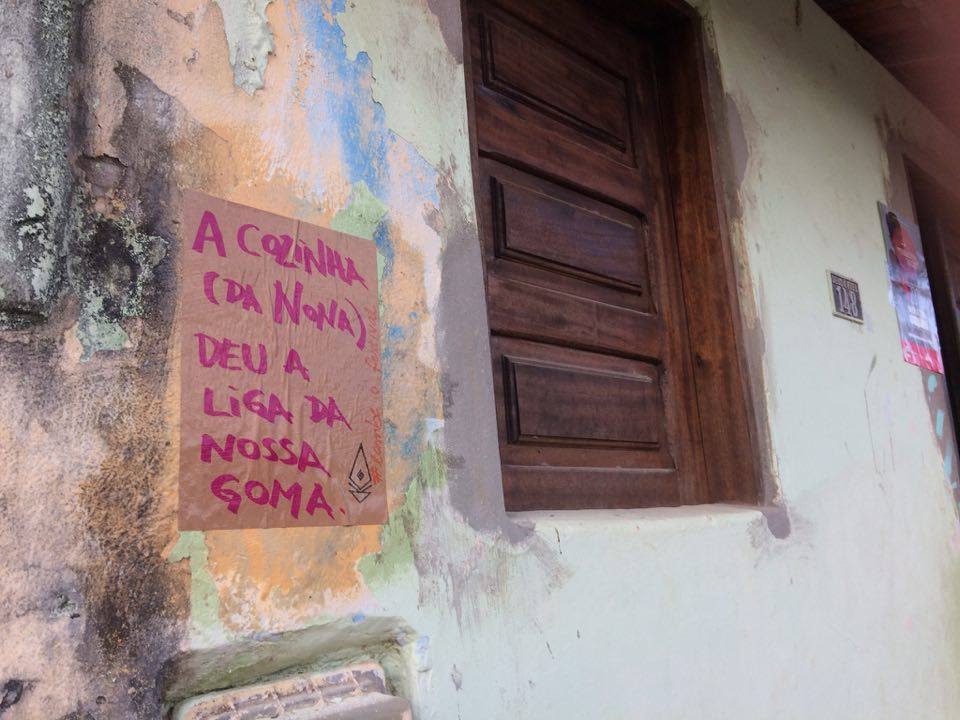 A COZINHA
(DA NONA)
DEU A
LIGA DA
NOSSA
GOMA.
148